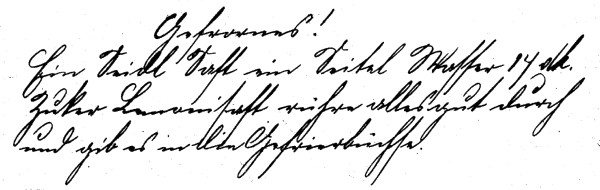 Gefrornes!
Ein Seidl Saft ein Seitel Wasser 14 dk.
Zuker Lemonisaft rühre alles gut durch
und gib es in die Gefrierbüchse.